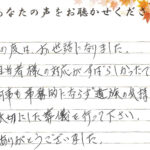 なたの声をお聴かせくださ
の度は、お世話になりました。
当者様の対応がすばらしかったで
何事も事務的にならず遺族の気持
大切にした葬儀を行って下さい。
ありがとうございました。